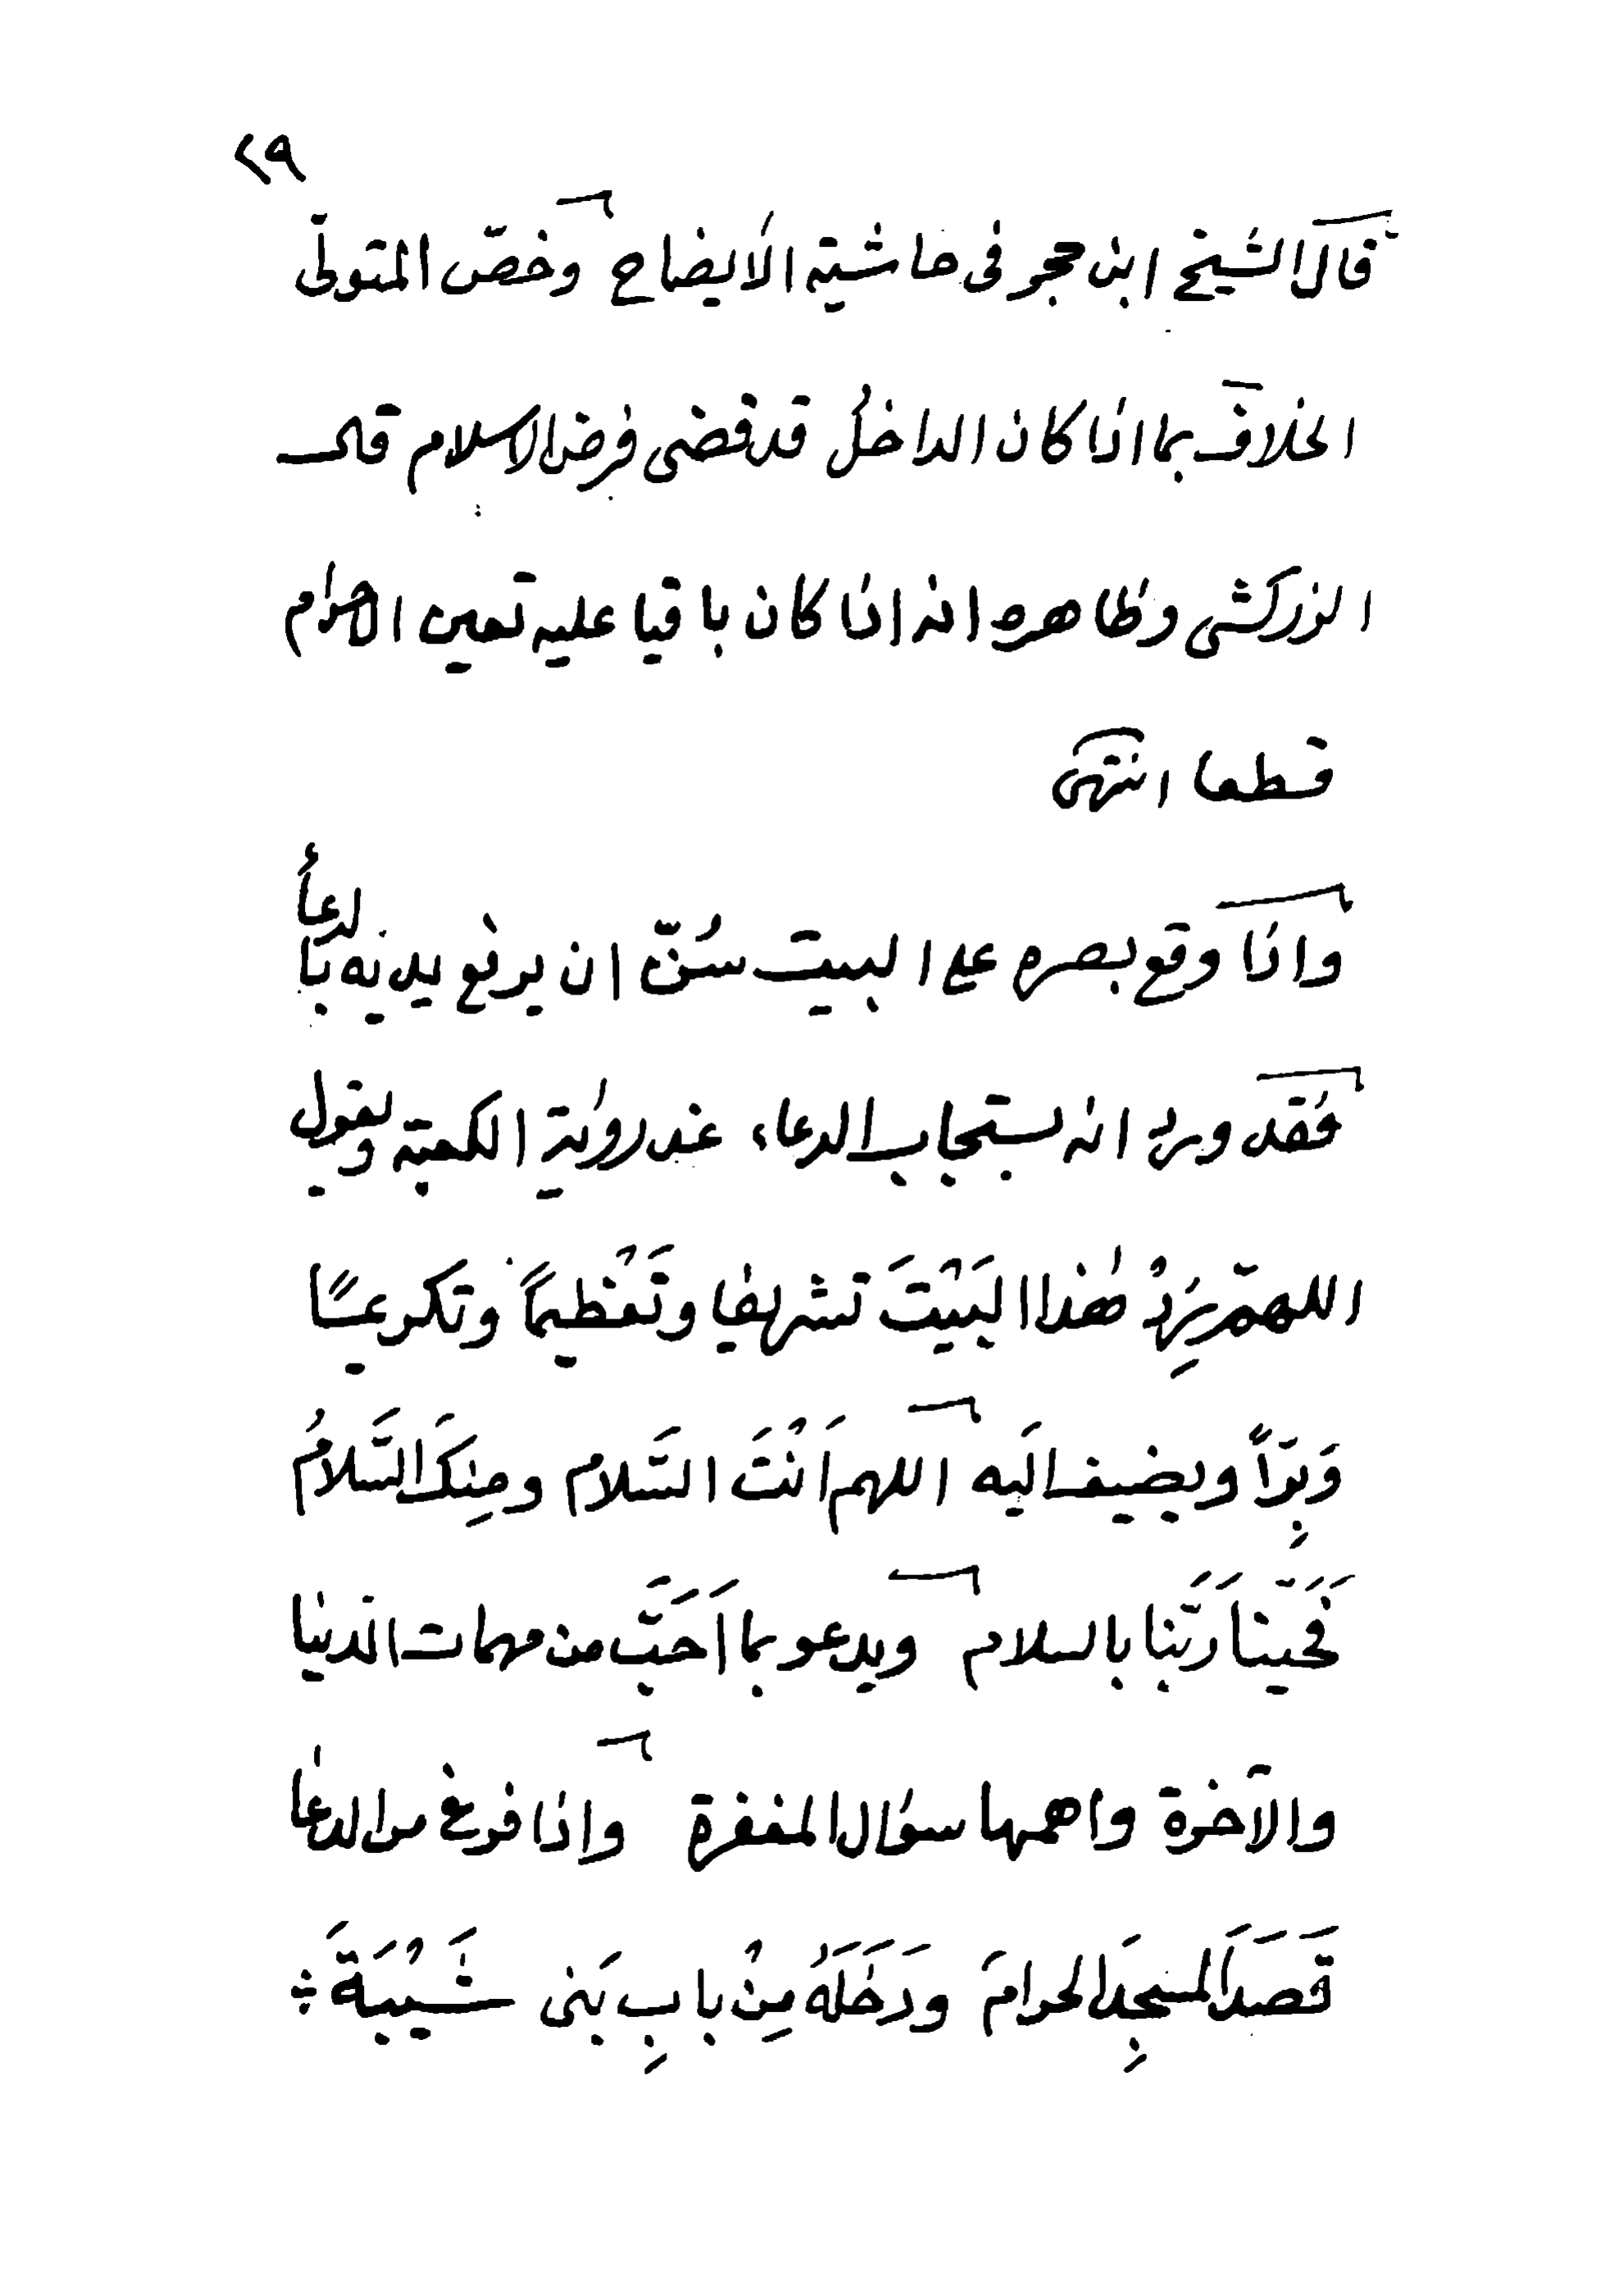 ٢٩
قال الشيخ ابن حجر فى حاشية الايضاح وخصّ المتولّى
الخلاف بما اذا كان الداخلُ قد قضى فرض الاسلام قال
الزركشى وظاهره انه اذا كان باقيا عليه تعين الاحرام
قطعا انتهى
واذا وقع بصره على البيت سُنّ ان يرفع يديه بالدعأ
فقد ورد انه يستجاب الدعاء عند رؤية الكعبة ويقول
اللهمّ زِدْ هٰذا البَيْتَ تشريفا وتَعْظيماً وتكريمًا
وَبِرّاً ويضيف اليه اللهم اَنْتَ السَّلام ومِنكَ السَّلامُ
فَحَيِّنا رَبَّنا بالسلام ويدعو بما اَحَبَّ من مهمات الدنيا
والآخرة واهمها سؤال المغفرة واذا فرغ من الدعا
قَصَدَ المسجِدَ الحرامَ ودَخَلَهُ مِنْ بابِ بَنى شَيْبَةَ